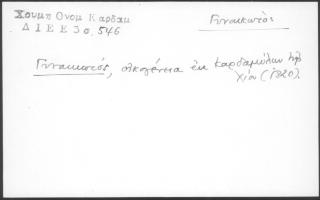 Χουμπ Ονομ Καρδαμ
Δ Ι Ε Ε 3α, 546
Γυναικωτός
Γυναικωτός, οἰκογένεια ἐκ Καρδαμύλων τῆς
Χίου (1820).